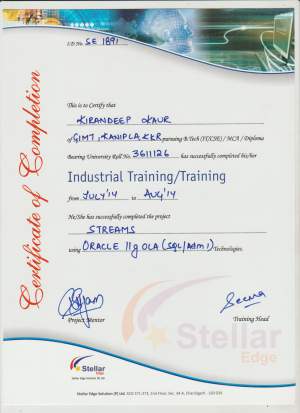 I/D No. SE 1891
Certificate of Completion
This is to Certify that
KIRANDEEP KAUR
of GIMT, KANIPLA, KKR pursuing B.Tech / MCA / Diploma
Bearing University Roll No. 3611126 has successfully completed his/her
Industrial Training/Training
from JULY'14 to AUG'14
He/She has successfully completed the project
STREAMS
using ORACLE 11g OLA (SQL/ADM1) Technologies.
Project Mentor
Training Head
Stellar
Edge
Stellar
Edge
Stellar Edge Solution (P) Ltd. SCO